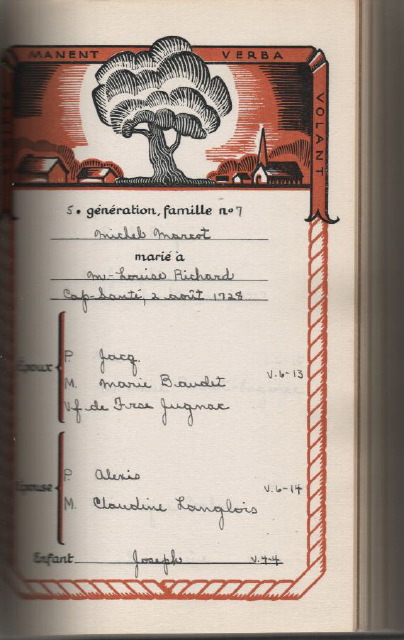 MANENT VERBA VOLANT
5e génération, famille no 7
Michel Marcot
marié à
M-Louise Richard
Cap-Santé, 2 août 1728
Époux
P. Jacq.
M. Marie Baudet V.6-13
Vf de Frse Jugnac
Épouse
P. Alexis V.6-14
M. Claudine Langlois
Enfant Joseph V.4-4